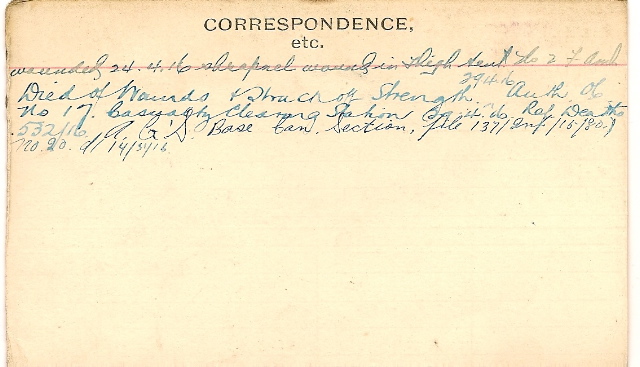 CORRESPONDENCE,
etc.
wounded 24.4.16 shrapnel wounds in thigh sent No 2 F Amb
29.4.16
Died of Wounds & Struck off Strength. Auth Of
No 17. Casualty Clearing Station 4.16 Ref Deaths
532/16 A. G's. Base Can. Section, file 137/Inf/15/80.)
No. 20. d/ 14/5/16